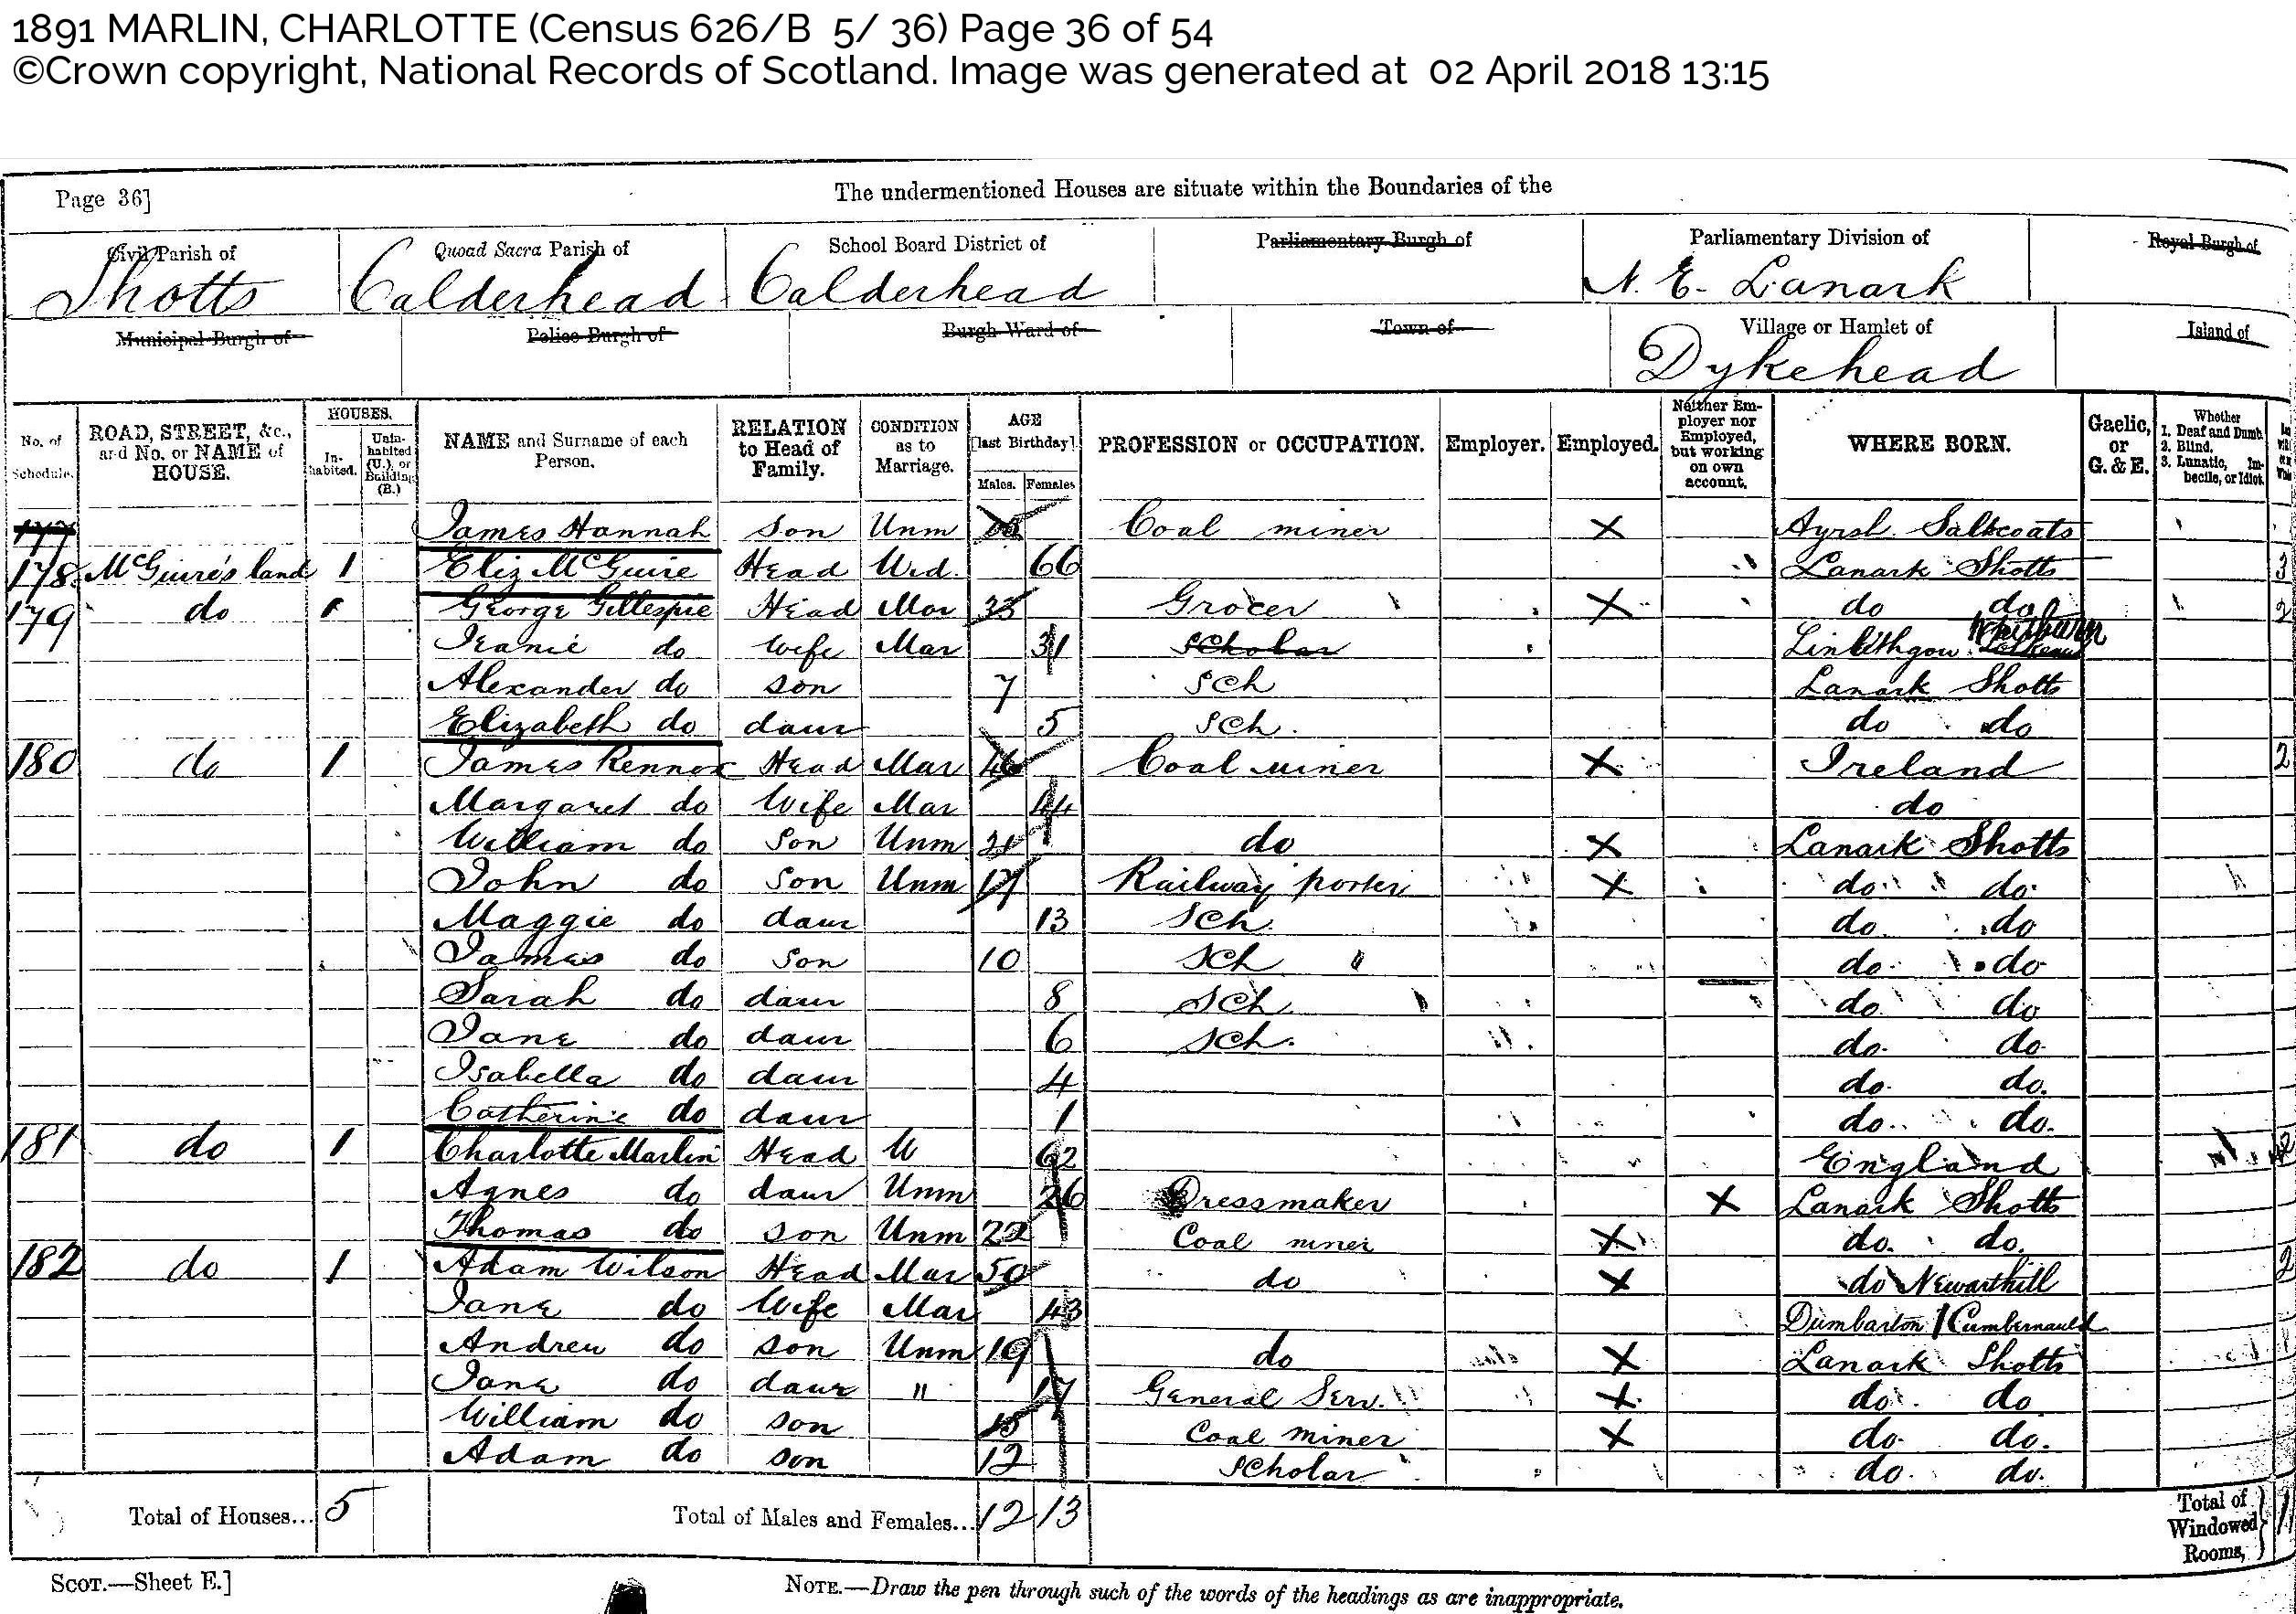 1891 MARLIN, CHARLOTTE (Census 626/B 5/ 36) Page 36 of 54
©Crown copyright, National Records of Scotland. Image was generated at 02 April 2018 13:15
Page 36] The undermentioned Houses are situate within the Boundaries of the
Civil Parish of Quoad Sacra Parish of School Board District of Parliamentary Burgh of Parliamentary Division of Royal Burgh of
Shotts Calderhead Calderhead N. E. Lanark
Municipal Burgh of Police Burgh of Burgh Ward of Town of Village or Hamlet of Island of
Dykehead
No. of Schedule. ROAD, STREET, &c., and No. or NAME of HOUSE. HOUSES. In-habited. Unin-habited (U.), or Building (B.) NAME and Surname of each Person. RELATION to Head of Family. CONDITION as to Marriage. AGE [last Birthday]. Males. Females PROFESSION or OCCUPATION. Employer. Employed. Neither Em-ployer nor Employed, but working on own account. WHERE BORN. Gaelic, or G. & E. Whether 1. Deaf and Dumb. 2. Blind. 3. Lunatic, Im-becile, or Idiot.
177 James Hannah Son Unm Coal miner X Ayrsh. Saltcoats
178 McGuire's land 1 Eliz McGuire Head Wid. 66 Lanark Shotts 3
179 do 1 George Gillespie Head Mar 33 Grocer X do do 2
Jeanie do Wife Mar 31 Scholar Linlithgow Whitburn
Alexander do son 7 Sch Lanark Shotts
Elizabeth do daur 5 Sch. do do
180 do 1 James Rennox Head Mar 46 Coal miner X Ireland 2
Margaret do Wife Mar 44 do
William do Son Unm 21 do X Lanark Shotts
John do Son Unm 17 Railway porter X do do
Maggie do daur 13 Sch. do do
James do Son 10 Sch do do
Sarah do daur 8 Sch. do do
Jane do daur 6 Sch. do do
Isabella do daur 4 do do.
Catherine do daur 1 do do.
181 do 1 Charlotte Marlin Head W 62 England 2
Agnes do daur Unm 26 Dressmaker X Lanark Shotts
Thomas do son Unm 22 Coal miner X do. do.
182 do 1 Adam Wilson Head Mar 50 do X do Newarthill 2
Jane do Wife Mar 43 Dumbarton / Cumbernauld
Andrew do son Unm 19 do X Lanark Shotts
Jane do daur " 17 General Serv. X do do
William do son 15 Coal miner X do do.
Adam do son 12 Scholar do do.
Total of Houses... 5 Total of Males and Females... 12 13 Total of Windowed Rooms,
SCOT.—Sheet E.] NOTE.—Draw the pen through such of the words of the headings as are inappropriate.